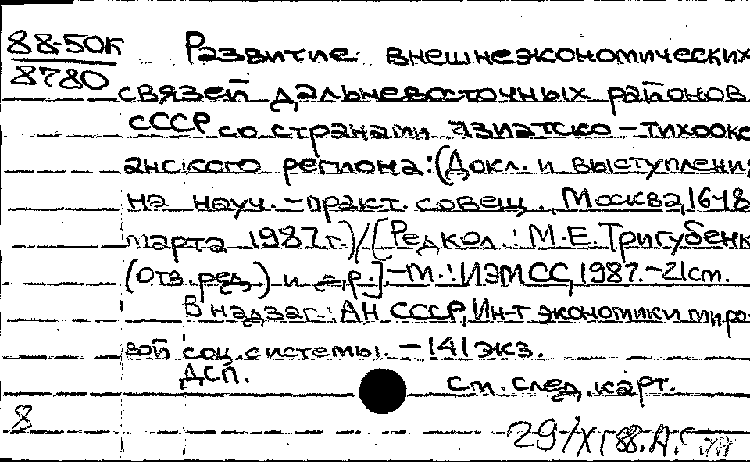 88-50к Развитие внешнеэкономических
8780 связей дальневосточных районов
СССР со странами азиатско-тихооке
анского региона: (Докл. и выступлени
на науч.-практ. совещ., Москва, 16-18
марта 1987 г.) / [Редкол.: М.Е. Тригубенк
(отв. ред.) и др.]. - М.: ИЭМСС, 1987. - 21 см.
В надзаг.: АН СССР, Ин-т экономики миро
вой соц. системы. - 141 экз.
ДСП.
см. след. карт.
8
29/XI 88. А.